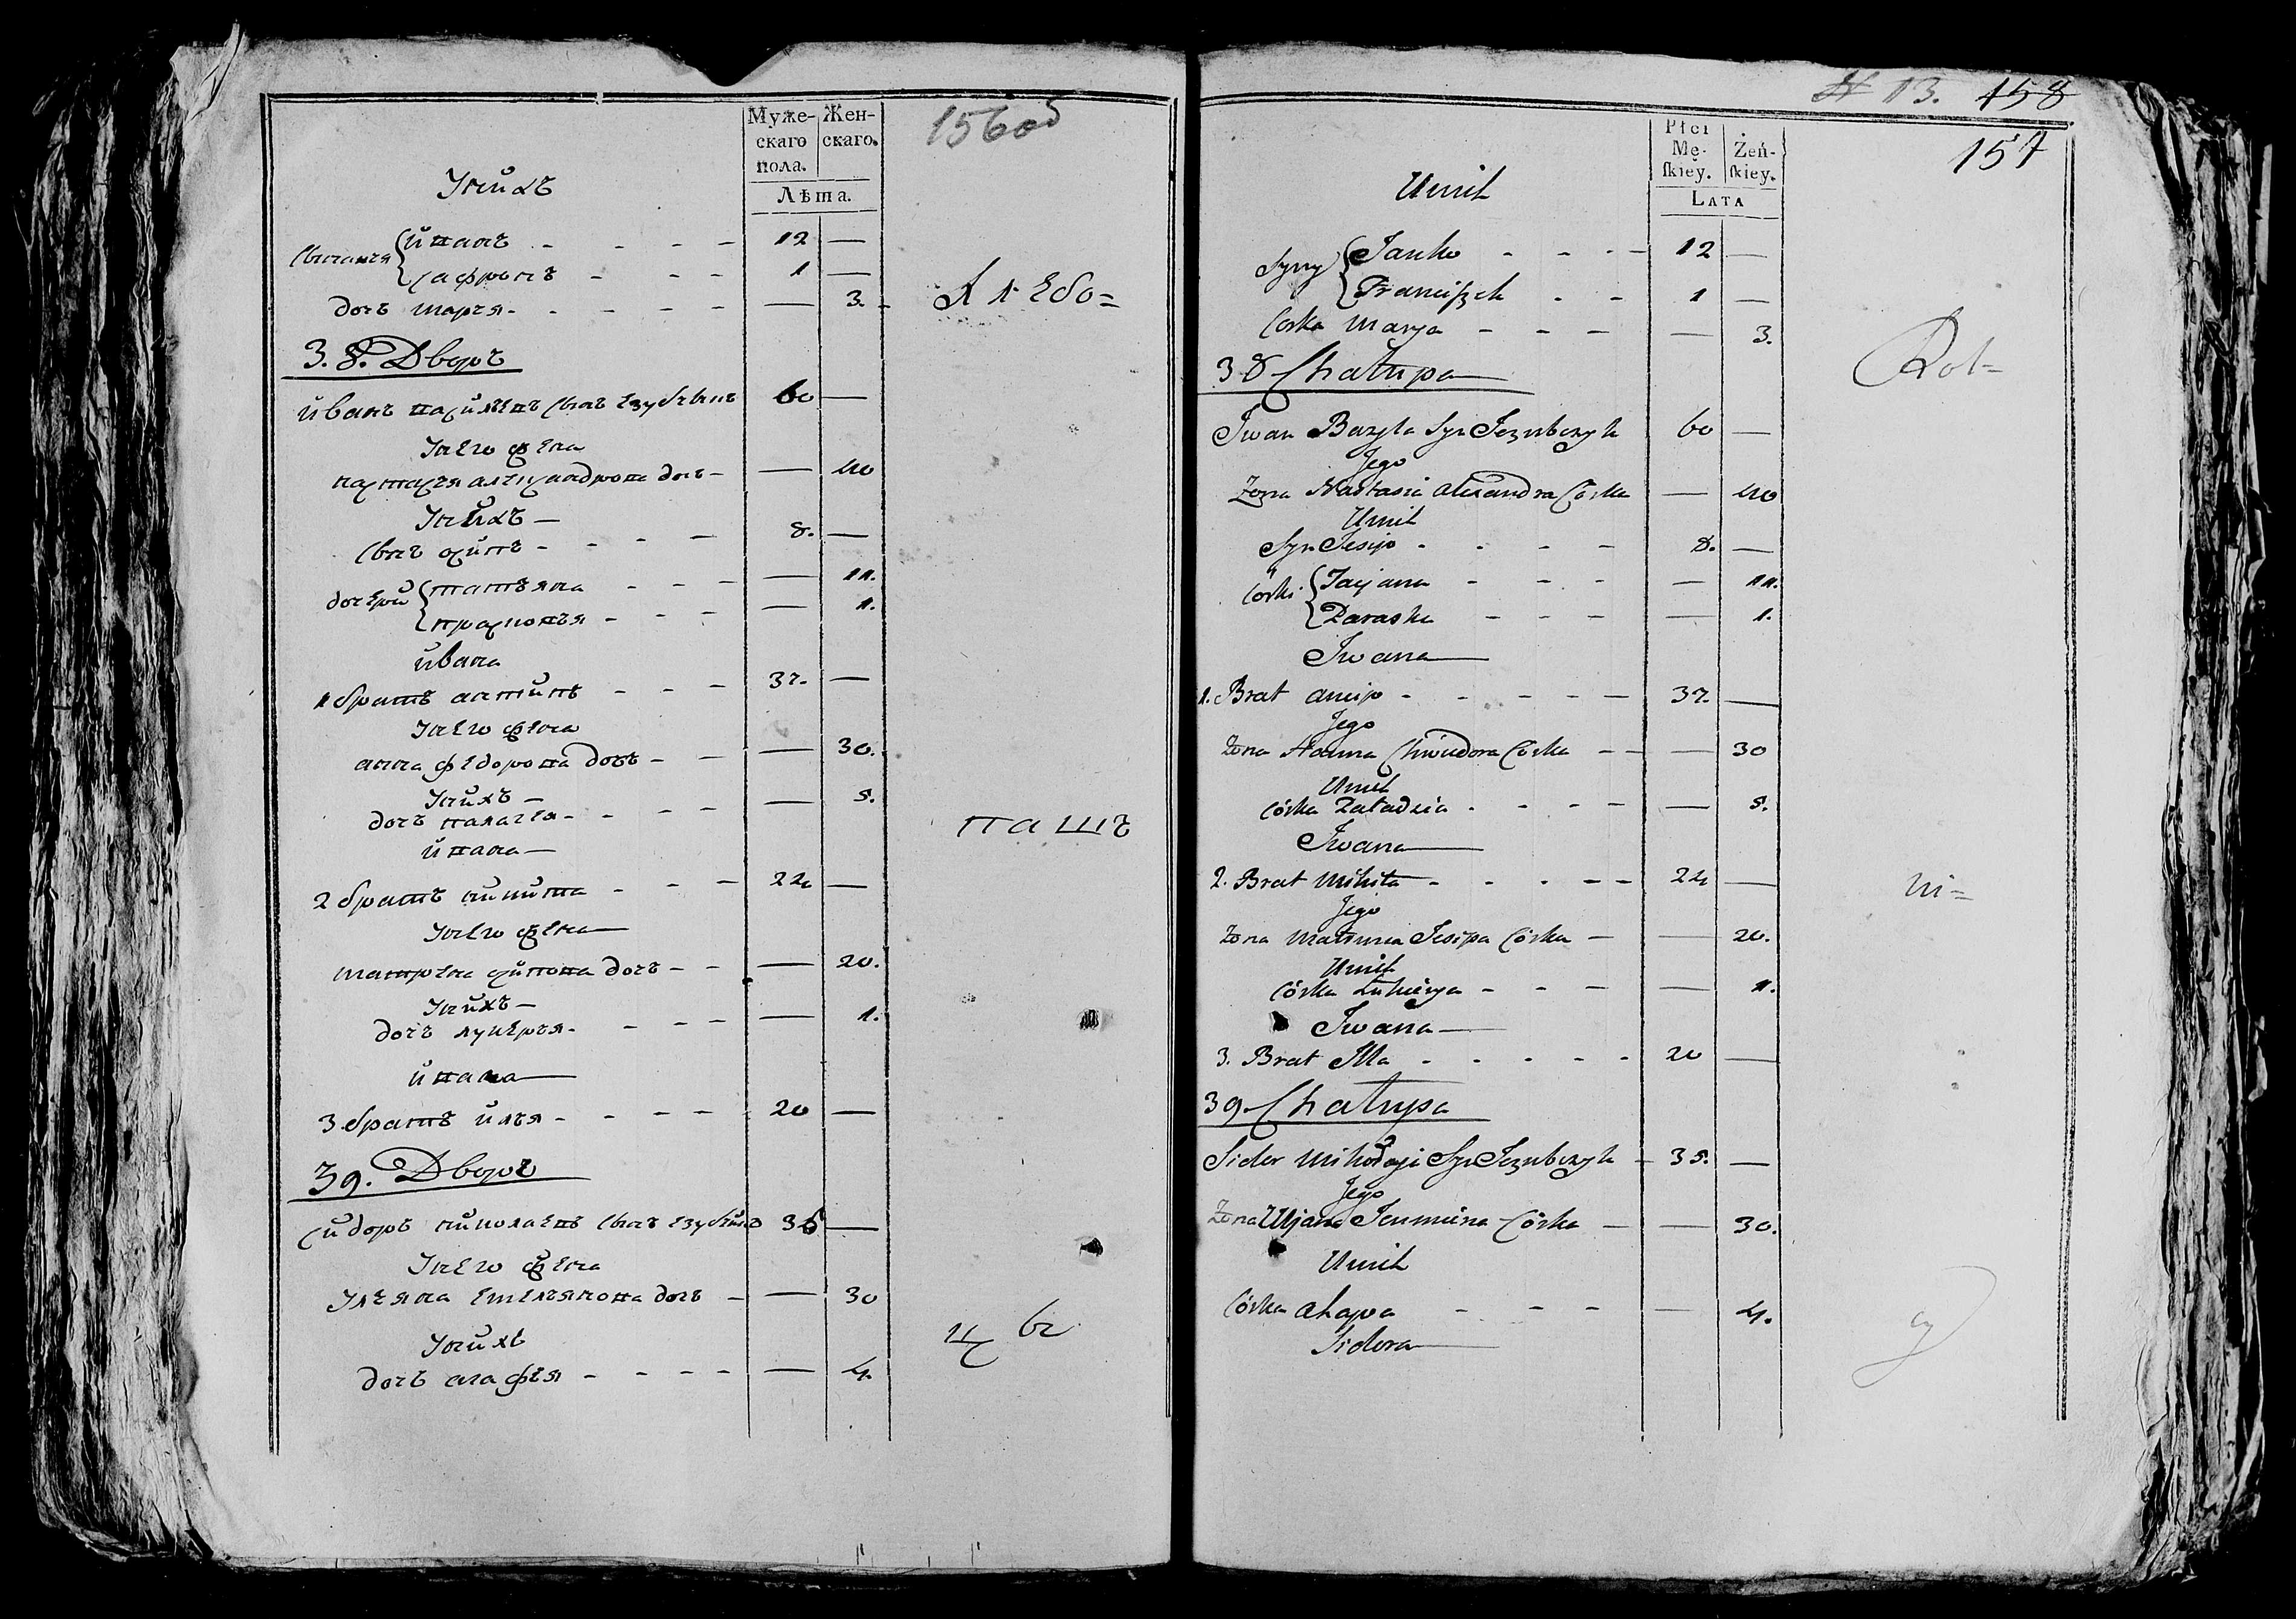 156об
Муже-
скаго
пола.
Жен-
скаго.
Лѣта.
Унихъ
Сыновья
иванъ - - - - 12 —
сафронъ - - - 1 —
дочъ марья - - - - — 3.
Хлебо=
3.8. Дворъ
иванъ василевъ сынъ езубчикъ 60 —
Унего жена
настасъя александрова дочъ - — 40
Унихъ —
Сынъ осипъ - - - - 8. —
дочери
татъяна - - - — 11.
прасковъя - - - — 1.
ивана
1 братъ антипъ - - - 37. —
Унего жена
анна федорова дочъ - - — 30.
Унихъ —
дочъ палагея - - - - — 5.
ивана —
пашъ
2 братъ никита - - - 24 —
Унего жена —
матрена осипова дочъ - - — 20.
Унихъ —
дочъ лукеръя - - - - — 1.
ивана —
3 братъ илъя - - - - 20 —
39. Дворъ
сидоръ николаевъ сынъ езубчикъ 35 —
Унего жена
Улъяна емелъянова дочъ - — 30
Унихъ
цы
дочъ агафъя - - - - — 4.
N 13. 158
157
Płci
Mę-
ſkiey.
Żeń-
ſkiey.
LATA
Unich
Syny
Janko - - - - 12 —
Franciſzek - - 1 —
Corka Marya - - - — 3.
Rol=
38 Chałupa
Iwan Bazyla Syn Jezubczyk 60 —
Jego
Zona Nastasia Alexandra Córka — 40
Unich
Syn Jesip - - - - 8. —
Córki
Tacjana - - - — 11.
Paraska - - - — 1.
Iwana —
1. Brat Ancip - - - - - 37. —
Jego
Zona Hanna Chwiedora Córka - - — 30
Unich
Córka Paładzia - - - - — 5.
Iwana —
2. Brat Mikita - - - - - 24 —
ni=
Jego
Zona Matruna Jesipa Córka - — 20.
Unich
Córka Łukierya - - - — 1.
Iwana —
3. Brat Illa - - - - - 20 —
39 Chałupa
Sider Mikołaji Syn Jezubczyk - 35. —
Jego
Zona Uljana Jemiliena Córka - — 30.
Unich
Córka Ahapa - - - — 4.
cy
Sidora —